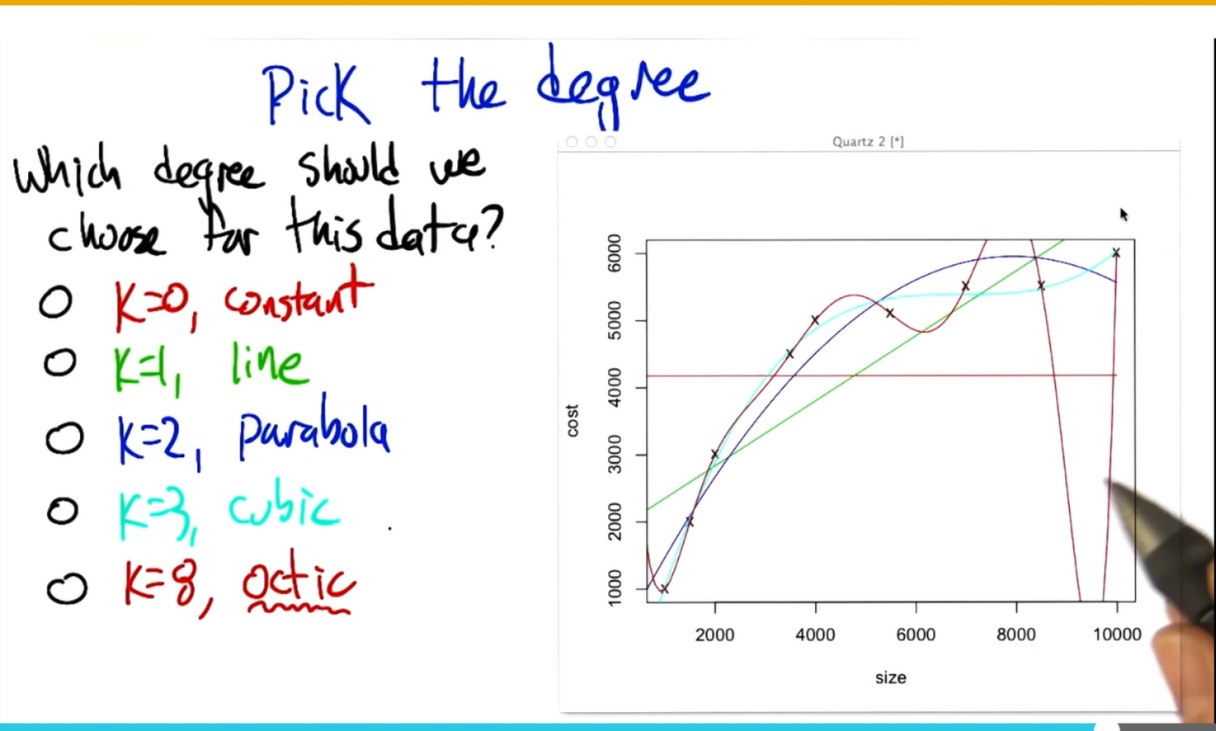 Pick the degree
Which degree should we
choose for this data?
K=0, constant
K=1, line
K=2, parabola
K=3, cubic
K=8, octic
Quartz 2 [*]
cost
6000
5000
4000
3000
2000
1000
2000 4000 6000 8000 10000
size